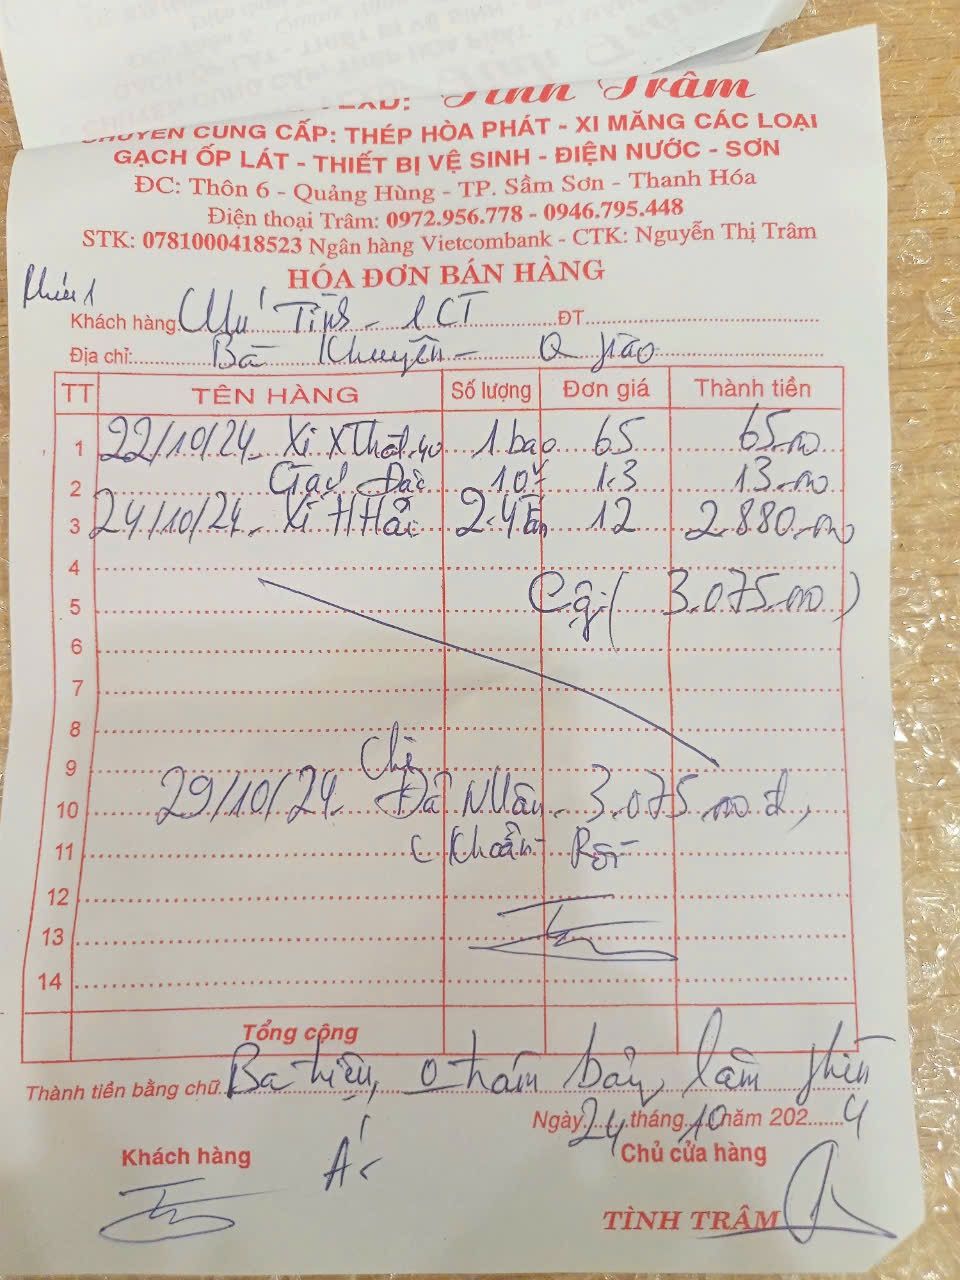 Tình Trâm
CHUYÊN CUNG CẤP: THÉP HÒA PHÁT - XI MĂNG CÁC LOẠI
GẠCH ỐP LÁT - THIẾT BỊ VỆ SINH - ĐIỆN NƯỚC - SƠN
ĐC: Thôn 6 - Quảng Hùng - TP. Sầm Sơn - Thanh Hóa
Điện thoại Trâm: 0972.956.778 - 0946.795.448
STK: 0781000418523 Ngân hàng Vietcombank - CTK: Nguyễn Thị Trâm
HÓA ĐƠN BÁN HÀNG
Phiếu 1
Khách hàng: Chú Tình - LCT ĐT
Địa chỉ: Bà Khuyên - Q giáo
TT TÊN HÀNG Số lượng Đơn giá Thành tiền
1 22/10/24 - Xi 1 bao 65 65.000
2 Gạch Đặc 10 1.3 13.000
3 24/10/24 - Xi 2.4 tấn 12 2.880.000
4
5 Cộng ( 3.075.000 )
6
7
8
9 Chị
10 29/10/24 - Đã Nhận - 3.075.000 đ,
11 ( Khoản Rồi
12
13
14
Tổng cộng
Thành tiền bằng chữ Ba triệu, 0 trăm bảy, lăm nghìn
Ngày 24 tháng 10 năm 2024
Khách hàng Chủ cửa hàng
TÌNH TRÂM